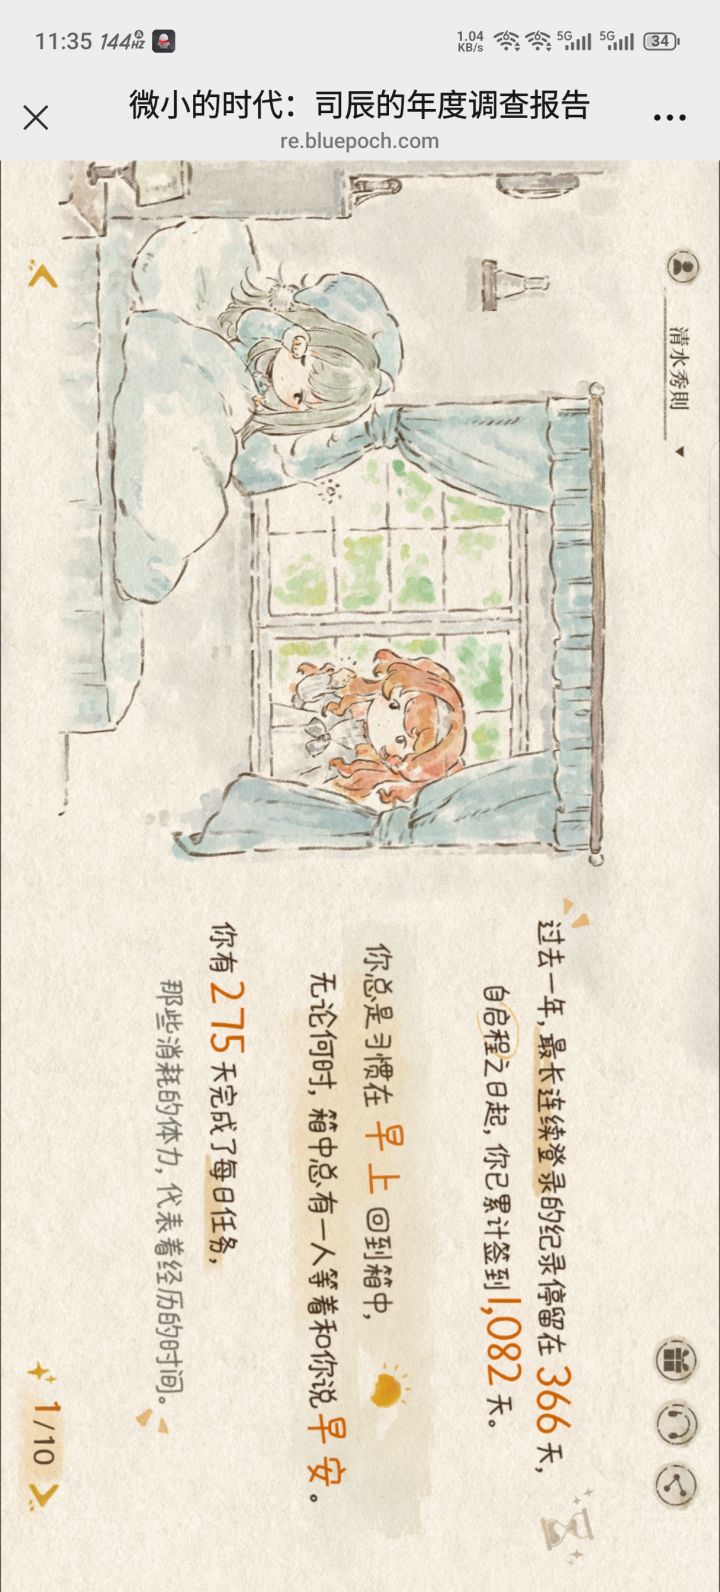 11:35 144HZ
1.04 KB/s 5G 5G 34
微小的时代：司辰的年度调查报告
re.bluepoch.com
清水秀則
过去一年，最长连续登录的纪录停留在 366 天，
自启程之日起，你已累计签到1,082 天。
你总是习惯在 早上 回到箱中，
无论何时，箱中总有一人等着和你说 早安。
你有 275 天完成了每日任务，
那些消耗的体力，代表着经历的时间。
1/10